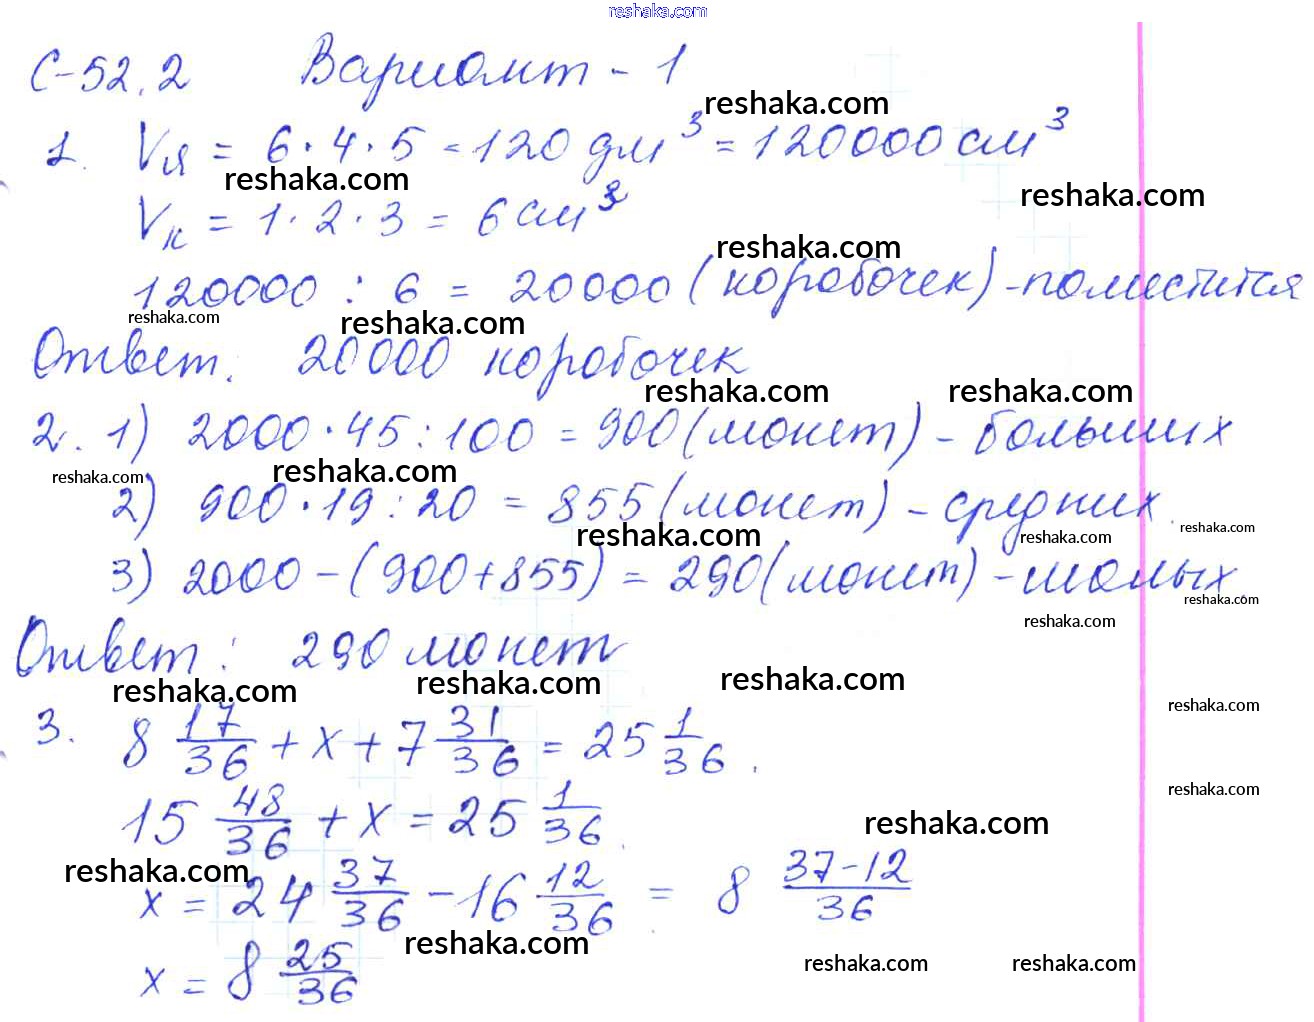 reshaka.com
С-52.2 Вариант - 1
reshaka.com
1. Vя = 6 · 4 · 5 = 120 дм³ = 120000 см³
reshaka.com
reshaka.com
Vк = 1 · 2 · 3 = 6 см³
reshaka.com
120000 : 6 = 20000 (коробочек) - поместится
reshaka.com
reshaka.com
Ответ. 20000 коробочек
reshaka.com
reshaka.com
2. 1) 2000 · 45 : 100 = 900 (монет) - больших
reshaka.com
reshaka.com
2) 900 · 19 : 20 = 855 (монет) - средних
reshaka.com
reshaka.com
reshaka.com
3) 2000 - (900 + 855) = 290 (монет) - малых
reshaka.com
reshaka.com
Ответ: 290 монет
reshaka.com
reshaka.com
reshaka.com
reshaka.com
3. 8 17/36 + x + 7 31/36 = 25 1/36.
reshaka.com
15 48/36 + x = 25 1/36.
reshaka.com
reshaka.com
x = 24 37/36 - 16 12/36 = 8 (37-12)/36
reshaka.com
reshaka.com
reshaka.com
x = 8 25/36